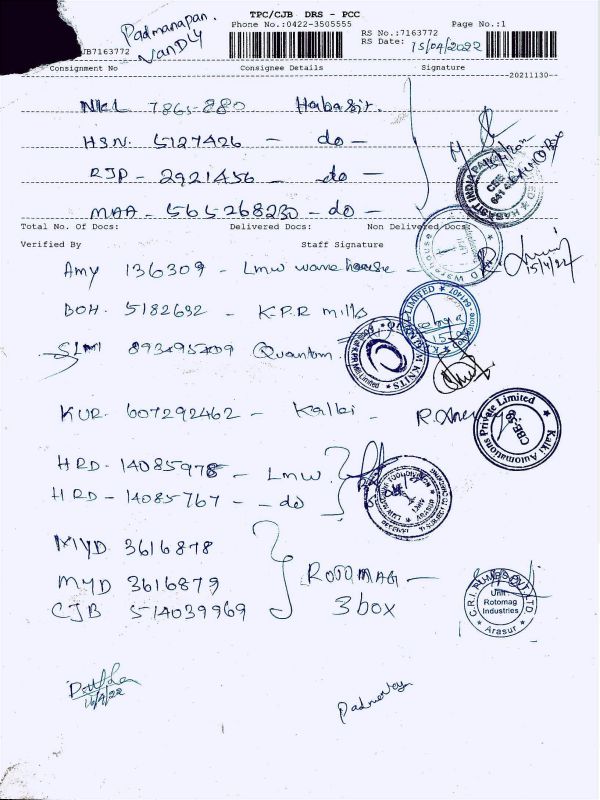 TPC/CJB DRS - PCC
Padmanapan.
Van DLY
Phone No.:0422-3505555 Page No.:1
RS No.:7163772
JB7163772 RS Date: 15/04/2022
Consignment No Consignee Details Signature
20211130
7865-880 Habasit.
HSN. 5127426 - do -
RJP - 2921456 - do -
MAA - 565268230 - do -
Total No. Of Docs: Delivered Docs: Non Delivered Docs:
Verified By Staff Signature
Amy 136309 - Lmw warehouse -
15/4/22
BOH. 5182692 - K.P.R mills
SLM Quantom
KUR. 607292462 - Kalki -
Kalki Automations Private Limited
CBE-59
HRD - 14085978 - Lmw.
HRD - 14085767 - - do
MYD 3616878
MYD 3616879 ROTOMAG -
CJB 514039969 3 box
C.R.I. PUMPS PVT. LTD.
Unit:
Rotomag
Industries
Arasur
16/4/22